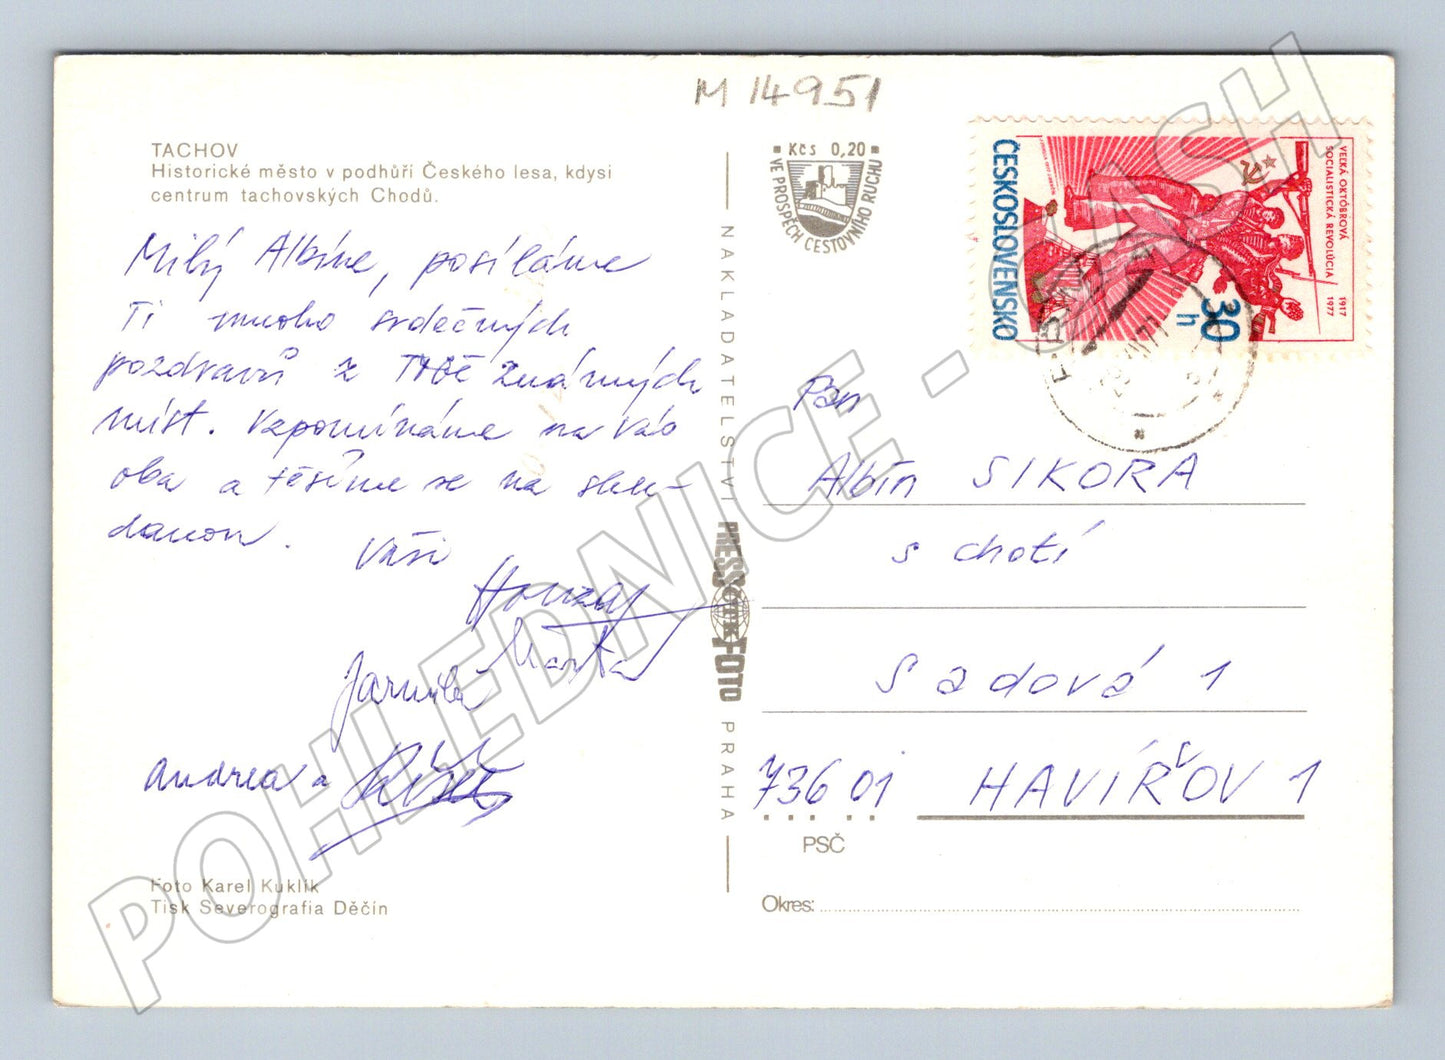 M 14951
TACHOV
Historické město v podhůří Českého lesa, kdysi
centrum tachovských Chodů.
Milý Albíne, posíláme
Ti mnoho srdečných
pozdravů z Tobě známých
míst. Vzpomínáme na Vás
oba a těšíme se na shle-
danou.
Vaši
Honza
Marta
Jarmila
Andrea a
Foto Karel Kuklík
Tisk Severografia Děčín
NAKLADATELSTVÍ
PRESSFOTO
ČTK
PRAHA
Kčs 0,20
VE PROSPĚCH CESTOVNÍHO RUCHU
ČESKOSLOVENSKO
30
h
VEĽKÁ OKTÓBROVÁ
SOCIALISTICKÁ REVOLÚCIA
1917
1977
Pan
Albín SIKORA
s chotí
Sadová 1
736 01 HAVÍŘOV 1
PSČ
Okres:
POHLEDNICE - CASH